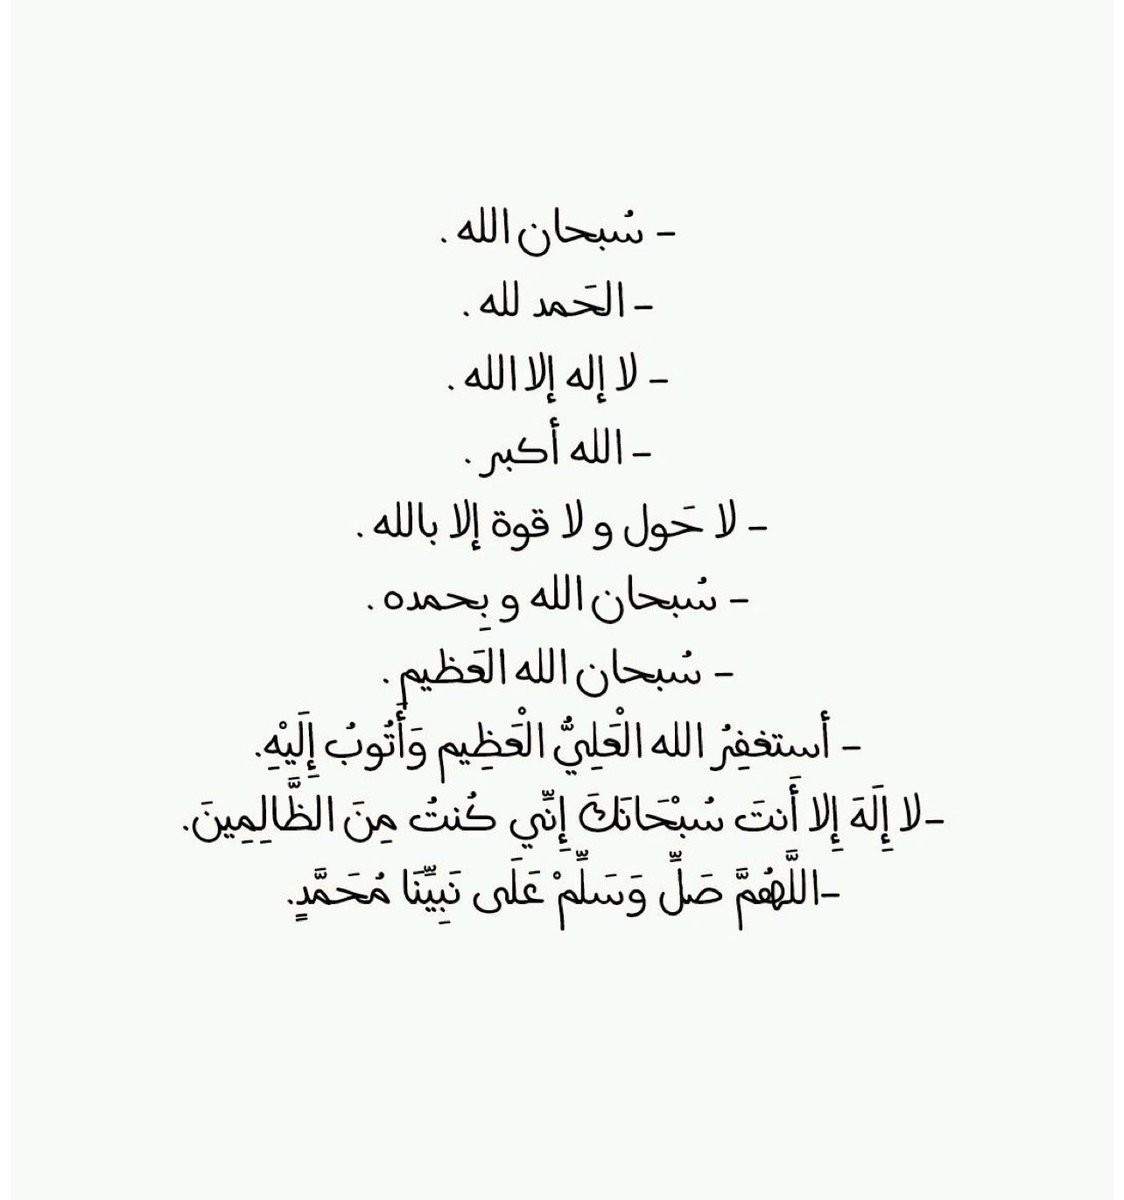 - سُبحان الله .
- الحَمد لله .
- لا إله إلا الله .
- الله أكبر .
- لا حَول و لا قوة إلا بالله .
- سُبحان الله و بِحمده .
- سُبحان الله العَظيم .
- أستغفِرُ الله الْعَلِيُّ الْعَظِيم وَأَتُوبُ إِلَيْهِ.
-لا إِلَهَ إِلا أَنتَ سُبْحَانَكَ إِنِّي كُنتُ مِنَ الظَّالِمِينَ.
-اللَّهُمَّ صَلِّ وَسَلِّمْ عَلَى نَبِيِّنَا مُحَمَّدٍ.